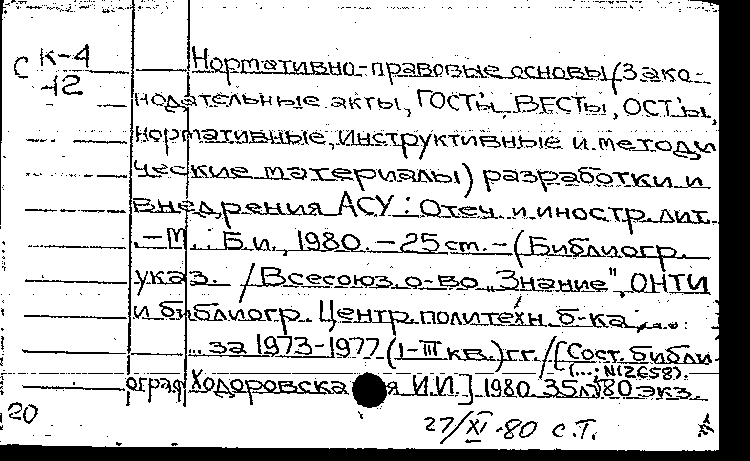 С К-4
-12
Нормативно-правовые основы (Зако-
нодательные акты, ГОСТы, ВЕСТы, ОСТы,
нормативные, инструктивные и методи
ческие материалы) разработки и
внедрения АСУ: Отеч. и иностр. лит.
.-М.: Б.и., 1980. - 25 ст. - (Библиогр.
указ. / Всесоюз. о-во "Знание", ОНТИ
и библиогр. Центр. политехн. б-ка
... за 1973-1977 (I-III кв.) гг. / [Сост. библи-
(...; N12658).
ограф Ходоровская И.И.] 1980 35л 80 экз.
20
27/XI-80 С.Т.